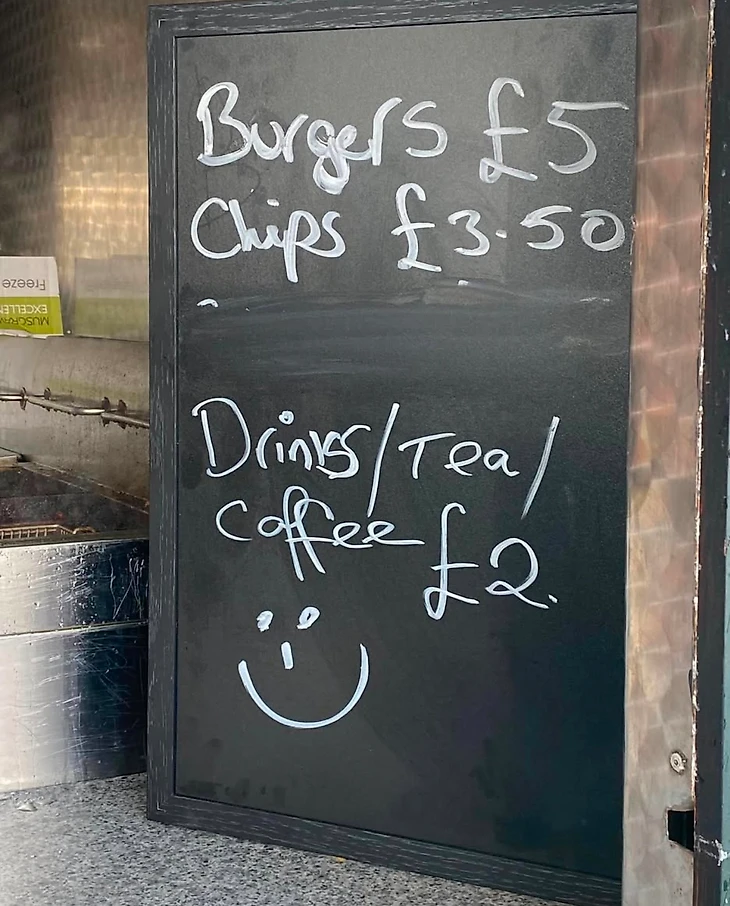 Burgers £5
Chips £3.50
Drinks/Tea/
Coffee £2.
Freeze
EXCELLEN
MUSGRAV